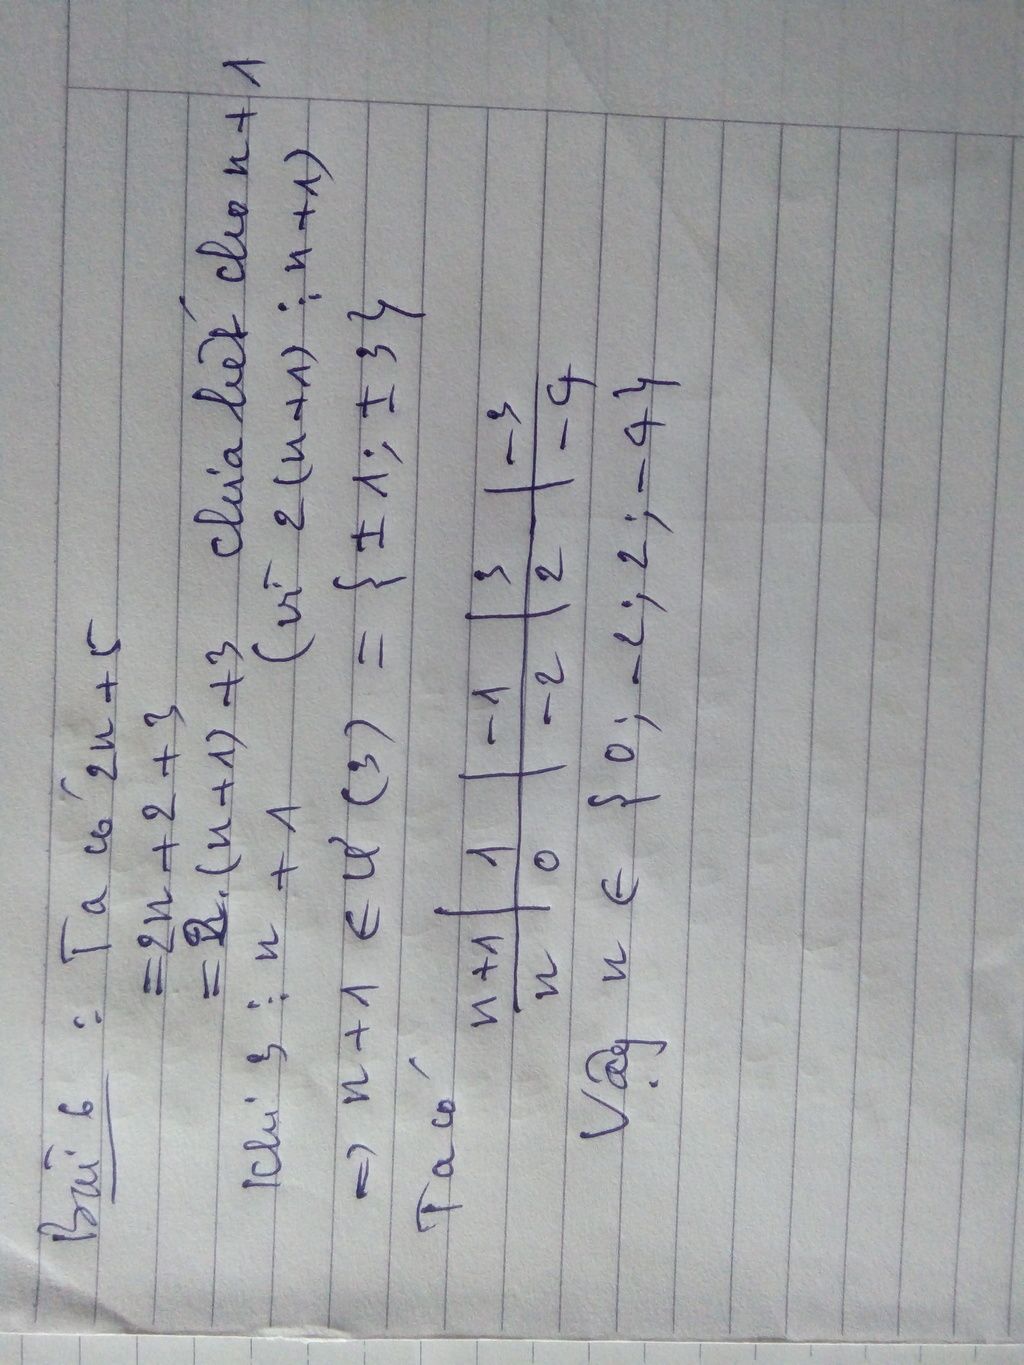 Bài 6 : Ta có 2n+5
=2n+2+3
=2.(n+1)+3 chia hết cho n+1
Khi 3 ⋮ n +1 (vì 2(n+1) ⋮ n+1)
=> n+1 ∈ Ư(3) = {±1; ±3}
Ta có
n+1 | 1 | -1 | 3 | -3
n | 0 | -2 | 2 | -4
Vậy n ∈ {0; -2; 2; -4}